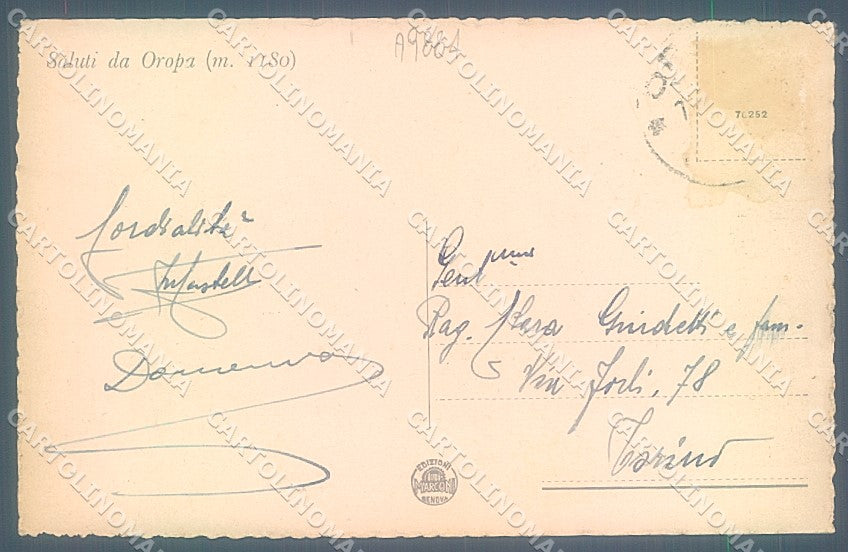 Saluti da Oropa (m. 1180)
A9884
76252
Cordialità
Domenico
Gent.ma
Rag. Clara Guidetti e fam.
Via Forlì, 78
Torino
EDIZIONI
MARCONI
GENOVA
CARTOLINOMANIA